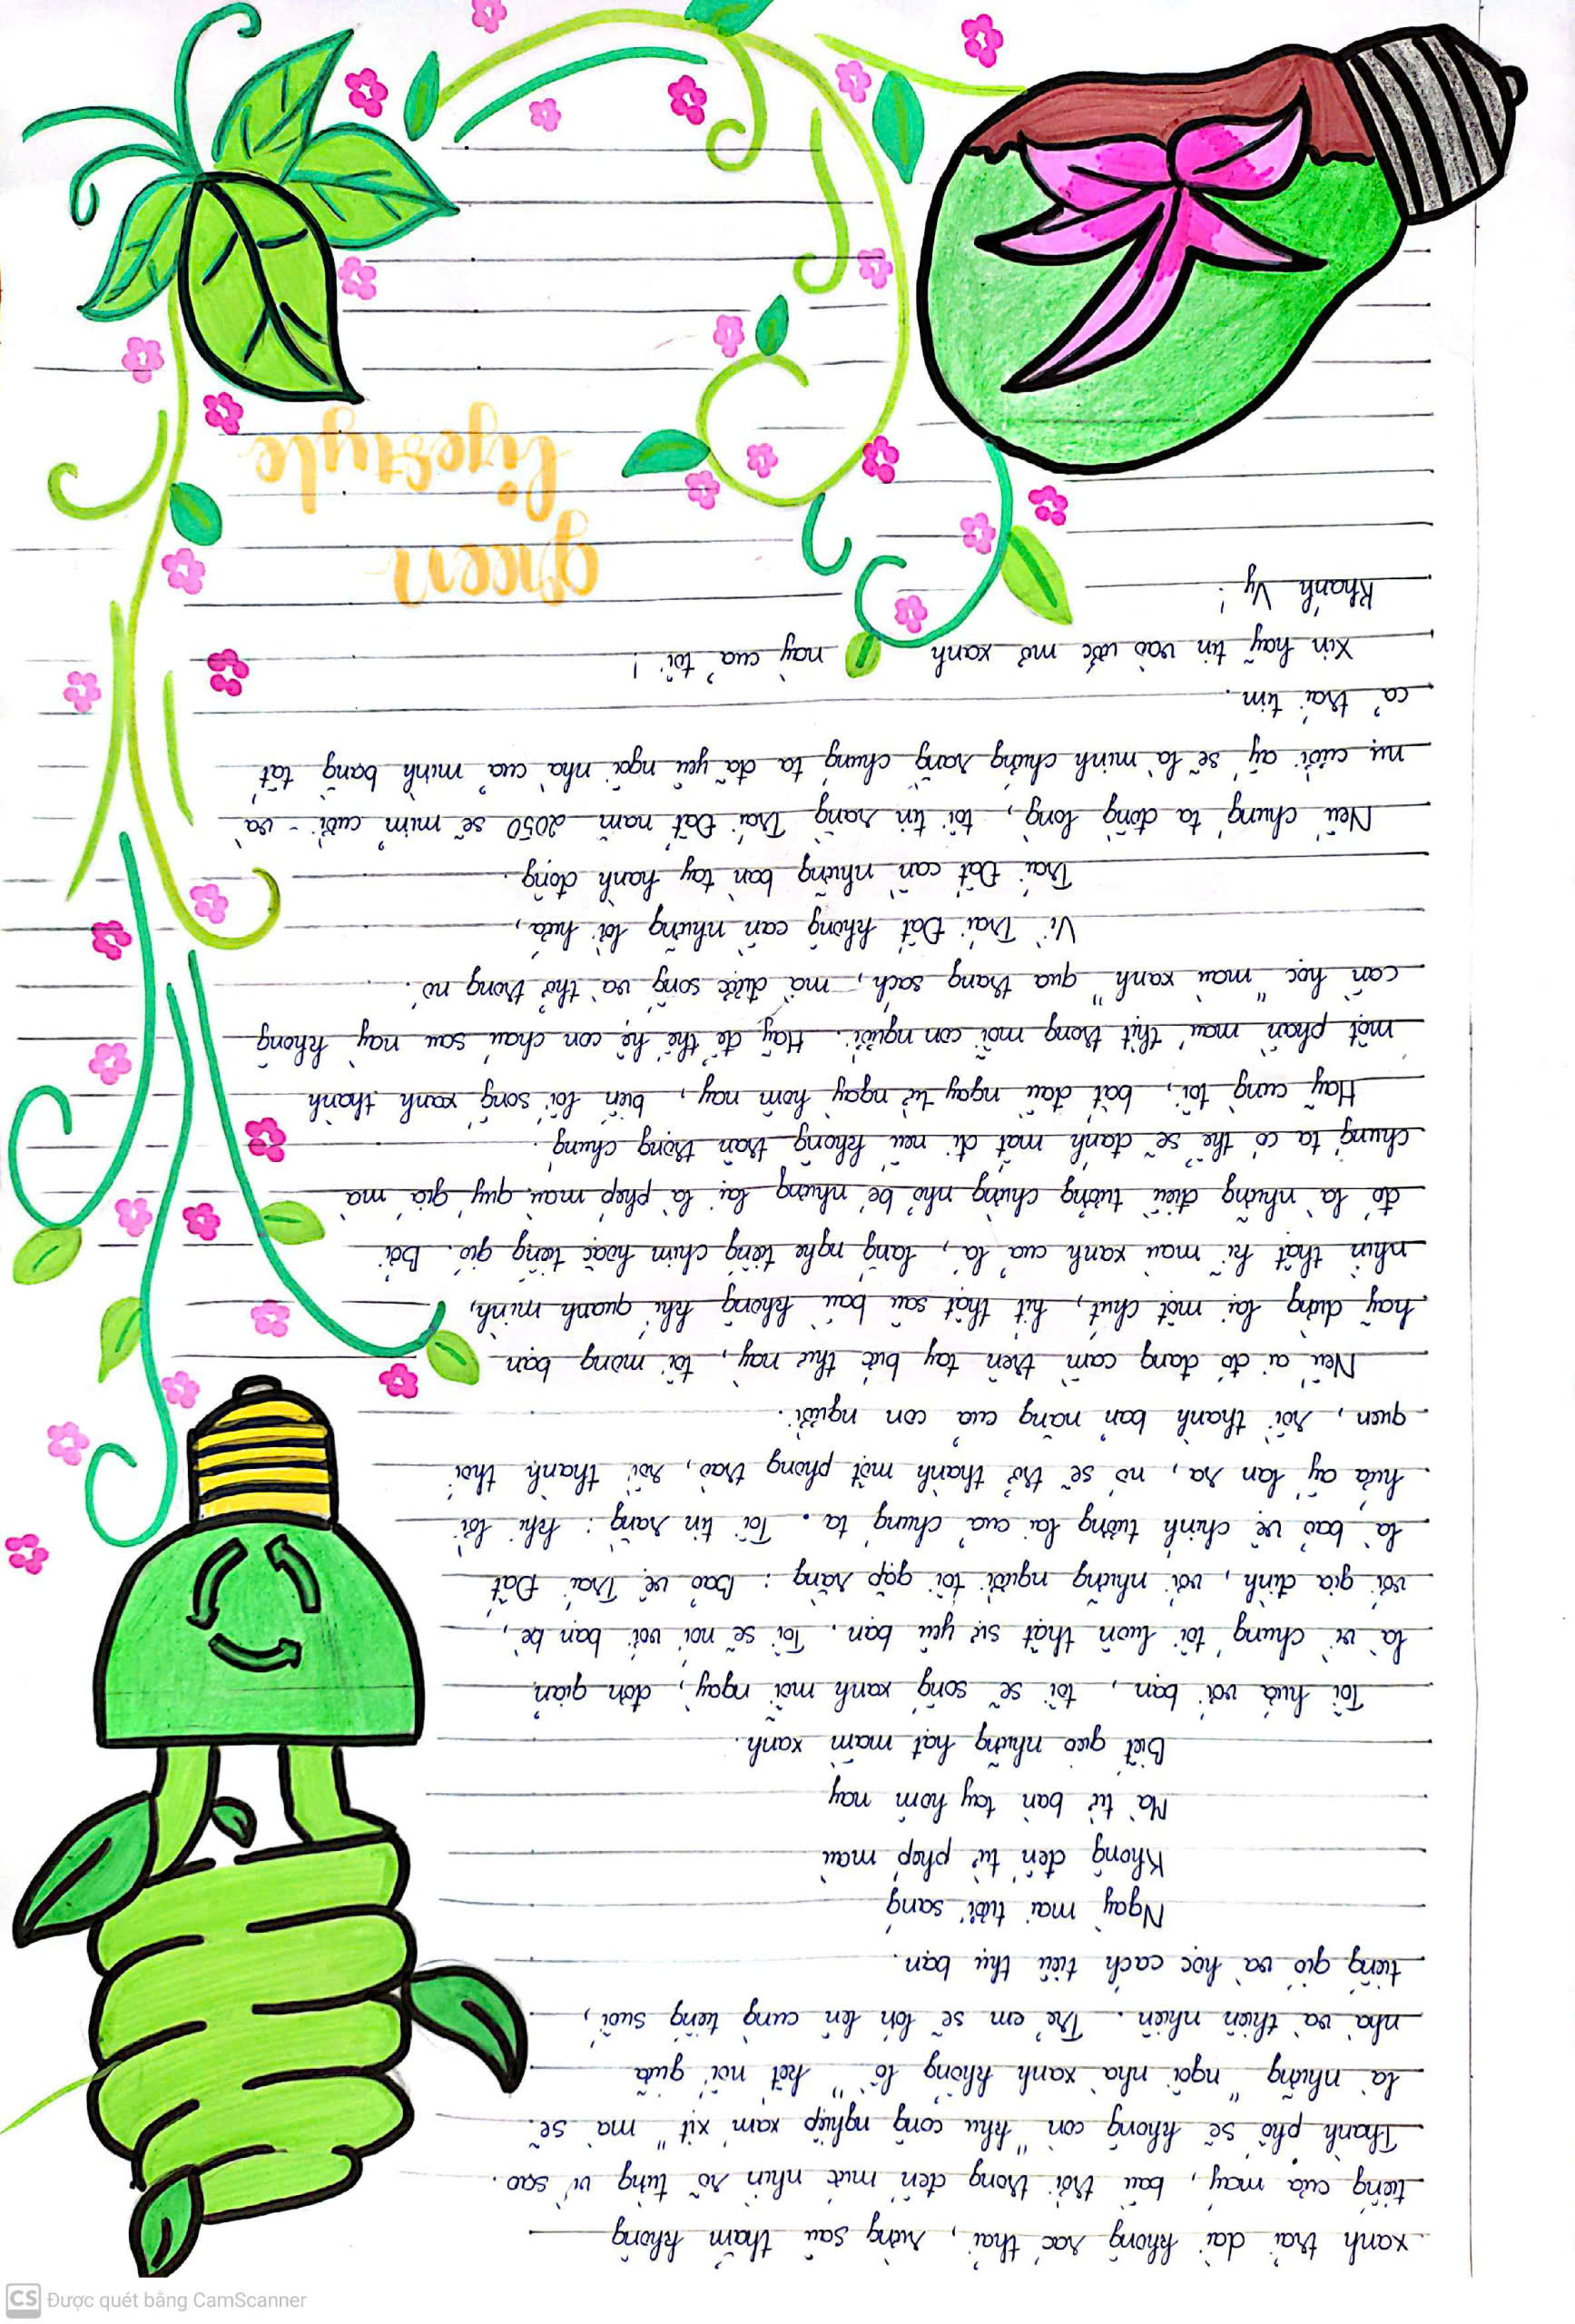 xanh trải dài không rác thải, rừng sâu thẳm không
tiếng cưa máy, bầu trời trong đến mức nhìn rõ từng vì sao.
Thành phố sẽ không còn "khu công nghiệp xám xịt" mà sẽ
là những "ngôi nhà xanh khổng lồ" kết nối giữa
nhà và thiên nhiên. Trẻ em sẽ lớn lên cùng tiếng suối,
tiếng gió và học cách tiêu thụ bạn.
Ngày mai tươi sáng
Không đến từ phép màu
Mà từ bàn tay hôm nay
Biết gieo những hạt mầm xanh.
Tôi hứa với bạn, tôi sẽ sống xanh mỗi ngày, đơn giản
là vì chúng tôi luôn thật sự yêu bạn. Tôi sẽ nói với bạn bè,
với gia đình, với những người tôi gặp rằng: Bảo vệ Trái Đất
là bảo vệ chính tương lai của chúng ta. Tôi tin rằng: khi lời
hứa ấy lan ra, nó sẽ trở thành một phong trào, rồi thành thói
quen, rồi thành bản năng của con người.
Nếu ai đó đang cầm trên tay bức thư này, tôi mong bạn
hãy dừng lại một chút, hít thật sâu bầu không khí quanh mình,
nhìn thật kĩ màu xanh của lá, lắng nghe tiếng chim hoặc tiếng gió. Bởi
đó là những điều tưởng chừng nhỏ bé nhưng lại là phép màu quý giá mà
chúng ta có thể sẽ đánh mất đi nếu không trân trọng chúng.
Hãy cùng tôi, bắt đầu ngay từ ngày hôm nay, biến lối sống xanh thành
một phần máu thịt trong mỗi con người. Hãy để thế hệ con cháu sau này không
cần học "màu xanh" qua trang sách, mà được sống và thở trong nó.
Vì Trái Đất không cần những lời hứa,
Trái Đất cần những bàn tay hành động.
Nếu chúng ta đồng lòng, tôi tin rằng Trái Đất năm 2050 sẽ mỉm cười - và
nụ cười ấy sẽ là minh chứng rằng chúng ta đã yêu ngôi nhà của mình bằng tất
cả trái tim.
Xin hãy tin vào ước mơ xanh này của tôi!
Khánh Vy!
green
lifestyle
CS Được quét bằng CamScanner